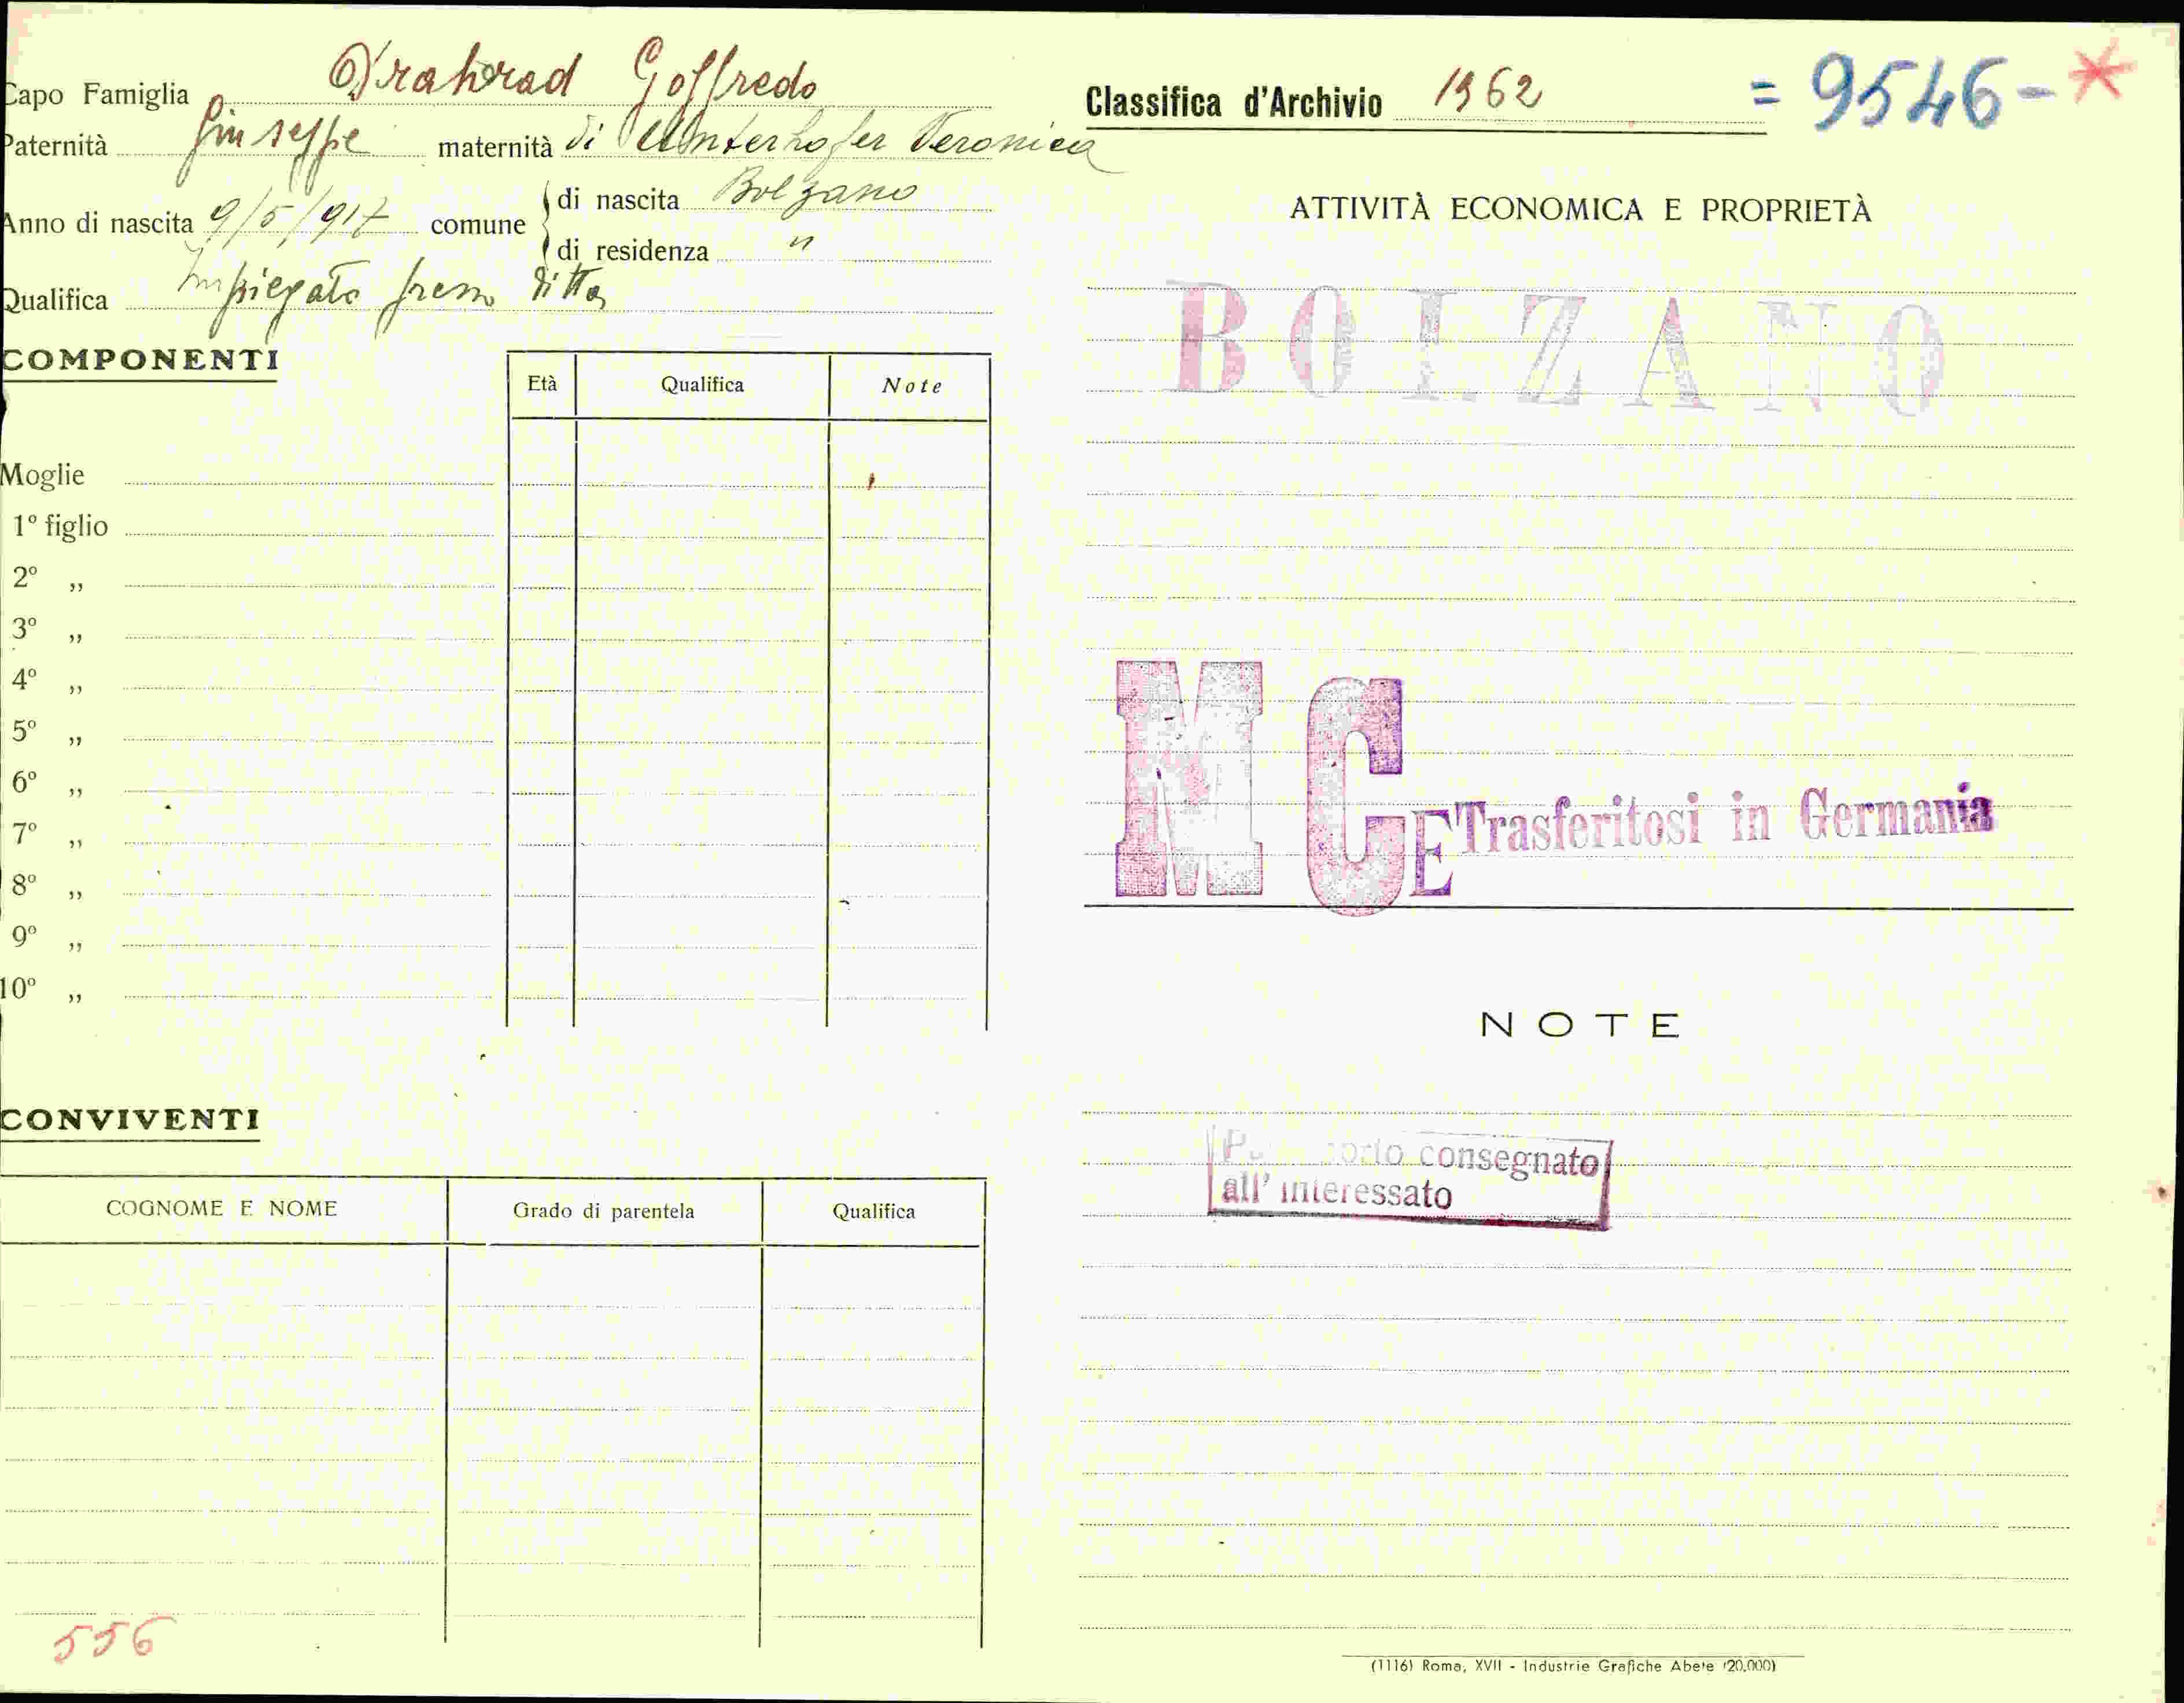 Capo Famiglia Goffredo
Paternità Giuseppe maternità di Unterhofer Veronica
Anno di nascita 9/5/917 comune di nascita Bolzano
di residenza "
Qualifica Impiegato presso ditta
COMPONENTI
Età Qualifica Note
Moglie
1º figlio
2º „
3º „
4º „
5º „
6º „
7º „
8º „
9º „
10º „
CONVIVENTI
COGNOME E NOME Grado di parentela Qualifica
556
Classifica d'Archivio 1962 = 9546-*
ATTIVITÀ ECONOMICA E PROPRIETÀ
BOLZANO
MCE Trasferitosi in Germania
NOTE
consegnato
all' interessato
(1116) Roma, XVII - Industrie Grafiche Abete (20.000)